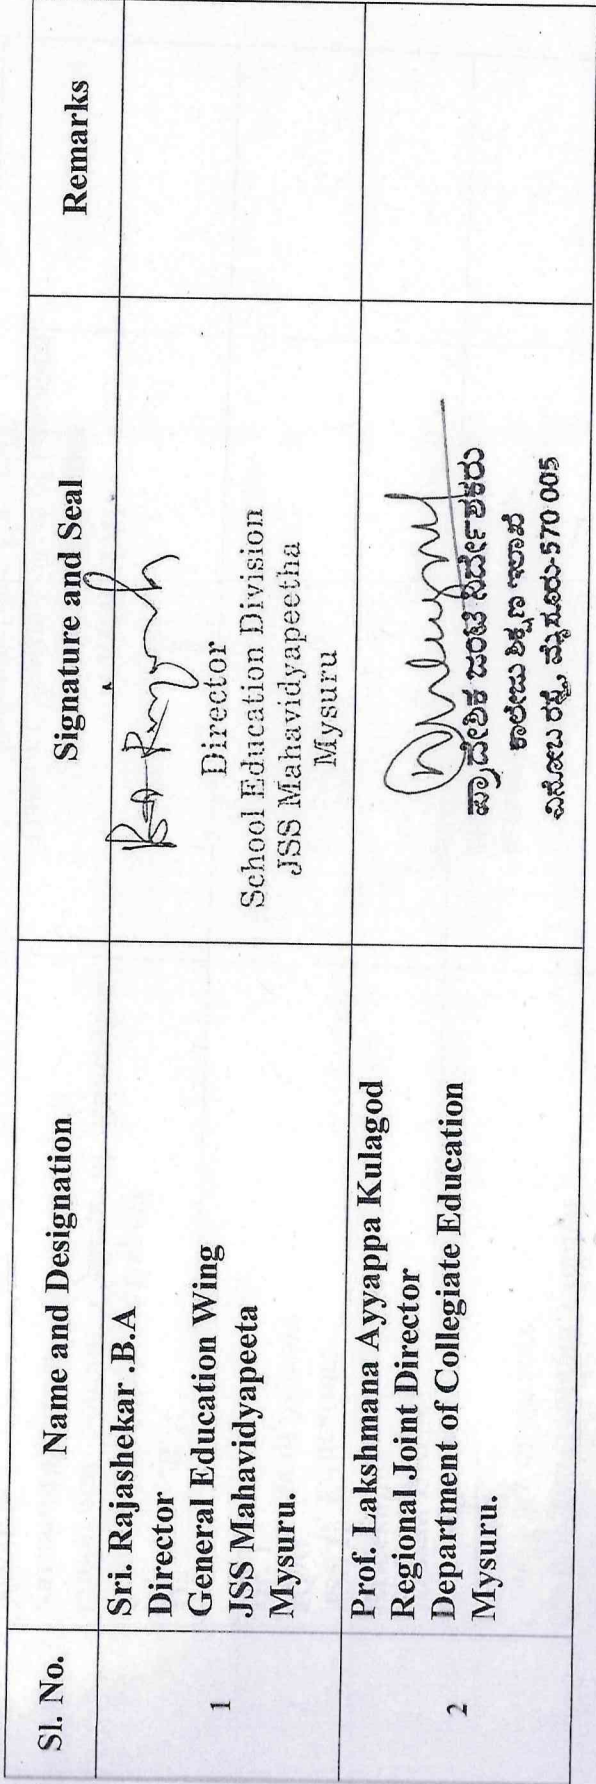 Sl. No.
Name and Designation
Signature and Seal
Remarks
1
Sri. Rajashekar .B.A
Director
General Education Wing
JSS Mahavidyapeeta
Mysuru.
Director
School Education Division
JSS Mahavidyapeetha
Mysuru
2
Prof. Lakshmana Ayyappa Kulagod
Regional Joint Director
Department of Collegiate Education
Mysuru.
ಪ್ರಾದೇಶಿಕ ಜಂಟಿ ನಿರ್ದೇಶಕರು
ಕಾಲೇಜು ಶಿಕ್ಷಣ ಇಲಾಖೆ
ವಿನೋಬ ರಸ್ತೆ, ಮೈಸೂರು-570 005